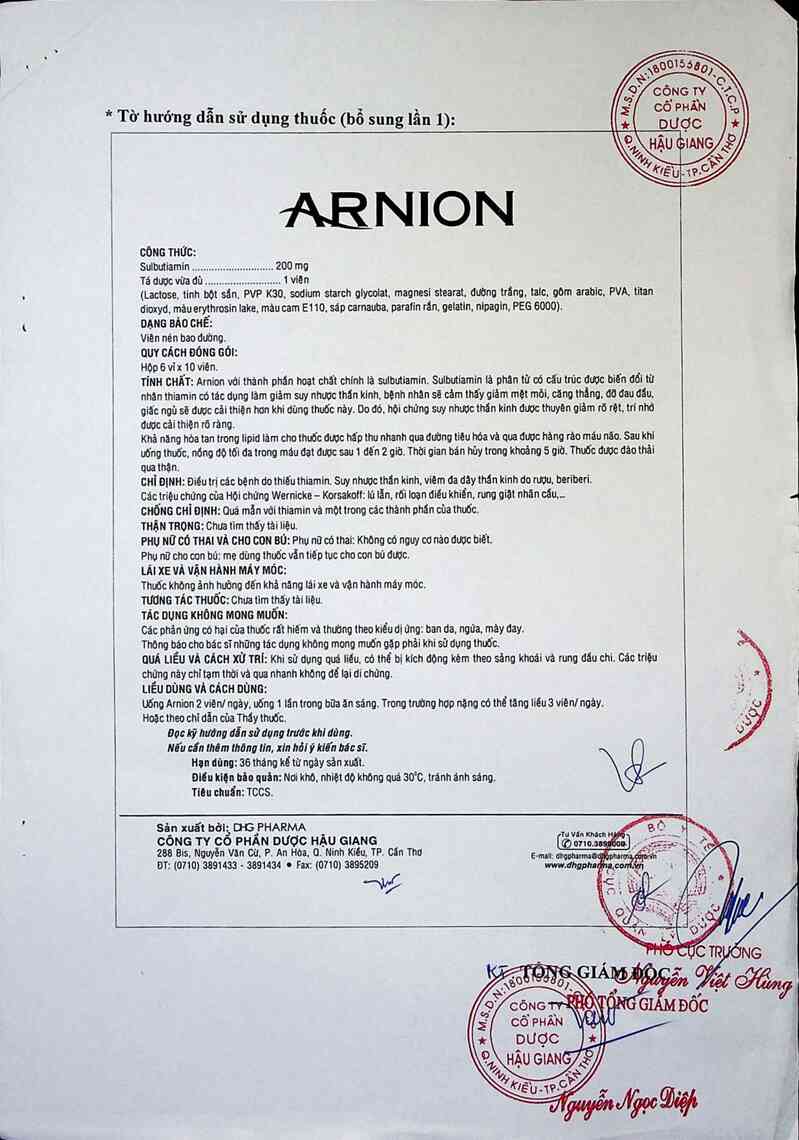 M.S.D.N:1800156801-C.T.C.P
CÔNG TY
CỔ PHẦN
DƯỢC
HẬU GIANG
Q.NINH KIỀU-TP.CẦN THƠ
* Tờ hướng dẫn sử dụng thuốc (bổ sung lần 1):
ARNION
CÔNG THỨC:
Sulbutiamin ............................ 200 mg
Tá dược vừa đủ .......................... 1 viên
(Lactose, tinh bột sắn, PVP K30, sodium starch glycolat, magnesi stearat, đường trắng, talc, gôm arabic, PVA, titan
dioxyd, màu erythrosin lake, màu cam E110, sáp carnauba, parafin rắn, gelatin, nipagin, PEG 6000).
DẠNG BÀO CHẾ:
Viên nén bao đường.
QUY CÁCH ĐÓNG GÓI:
Hộp 6 vỉ x 10 viên.
TÍNH CHẤT: Arnion với thành phần hoạt chất chính là sulbutiamin. Sulbutiamin là phân tử có cấu trúc được biến đổi từ
nhân thiamin có tác dụng làm giảm suy nhược thần kinh, bệnh nhân sẽ cảm thấy giảm mệt mỏi, căng thẳng, đỡ đau đầu,
giấc ngủ sẽ được cải thiện hơn khi dùng thuốc này. Do đó, hội chứng suy nhược thần kinh được thuyên giảm rõ rệt, trí nhớ
được cải thiện rõ ràng.
Khả năng hòa tan trong lipid làm cho thuốc được hấp thu nhanh qua đường tiêu hóa và qua được hàng rào máu não. Sau khi
uống thuốc, nồng độ tối đa trong máu đạt được sau 1 đến 2 giờ. Thời gian bán hủy trong khoảng 5 giờ. Thuốc được đào thải
qua thận.
CHỈ ĐỊNH: Điều trị các bệnh do thiếu thiamin. Suy nhược thần kinh, viêm đa dây thần kinh do rượu, beriberi.
Các triệu chứng của Hội chứng Wernicke – Korsakoff: lú lẫn, rối loạn điều khiển, rung giật nhãn cầu,...
CHỐNG CHỈ ĐỊNH: Quá mẫn với thiamin và một trong các thành phần của thuốc.
THẬN TRỌNG: Chưa tìm thấy tài liệu.
PHỤ NỮ CÓ THAI VÀ CHO CON BÚ: Phụ nữ có thai: Không có nguy cơ nào được biết.
Phụ nữ cho con bú: mẹ dùng thuốc vẫn tiếp tục cho con bú được.
LÁI XE VÀ VẬN HÀNH MÁY MÓC:
Thuốc không ảnh hưởng đến khả năng lái xe và vận hành máy móc.
TƯƠNG TÁC THUỐC: Chưa tìm thấy tài liệu.
TÁC DỤNG KHÔNG MONG MUỐN:
Các phản ứng có hại của thuốc rất hiếm và thường theo kiểu dị ứng: ban da, ngứa, mày đay.
Thông báo cho bác sĩ những tác dụng không mong muốn gặp phải khi sử dụng thuốc.
QUÁ LIỀU VÀ CÁCH XỬ TRÍ: Khi sử dụng quá liều, có thể bị kích động kèm theo sảng khoái và rung đầu chi. Các triệu
chứng này chỉ tạm thời và qua nhanh không để lại di chứng.
LIỀU DÙNG VÀ CÁCH DÙNG:
Uống Arnion 2 viên/ ngày, uống 1 lần trong bữa ăn sáng. Trong trường hợp nặng có thể tăng liều 3 viên/ ngày.
Hoặc theo chỉ dẫn của Thầy thuốc.
Đọc kỹ hướng dẫn sử dụng trước khi dùng.
Nếu cần thêm thông tin, xin hỏi ý kiến bác sĩ.
Hạn dùng: 36 tháng kể từ ngày sản xuất.
Điều kiện bảo quản: Nơi khô, nhiệt độ không quá 30°C, tránh ánh sáng.
Tiêu chuẩn: TCCS.
DƯỢC
Sản xuất bởi: DHG PHARMA
CÔNG TY CỔ PHẦN DƯỢC HẬU GIANG
288 Bis, Nguyễn Văn Cừ, P. An Hòa, Q. Ninh Kiều, TP. Cần Thơ
ĐT: (0710) 3891433 - 3891434 • Fax: (0710) 3895209
Tư Vấn Khách Hàng
0710.3899000
E-mail: dhgpharma@dhgpharma.com.vn
www.dhgpharma.com.vn
BỘ Y TẾ
CỤC QUẢN LÝ DƯỢC
PHÓ CỤC TRƯỞNG
Nguyễn Việt Hùng
KT TỔNG GIÁM ĐỐC
PHÓ TỔNG GIÁM ĐỐC
M.S.D.N:1800156801-C.T.C.P
CÔNG TY
CỔ PHẦN
DƯỢC
HẬU GIANG
Q.NINH KIỀU-TP.CẦN THƠ
Nguyễn Ngọc Diệp